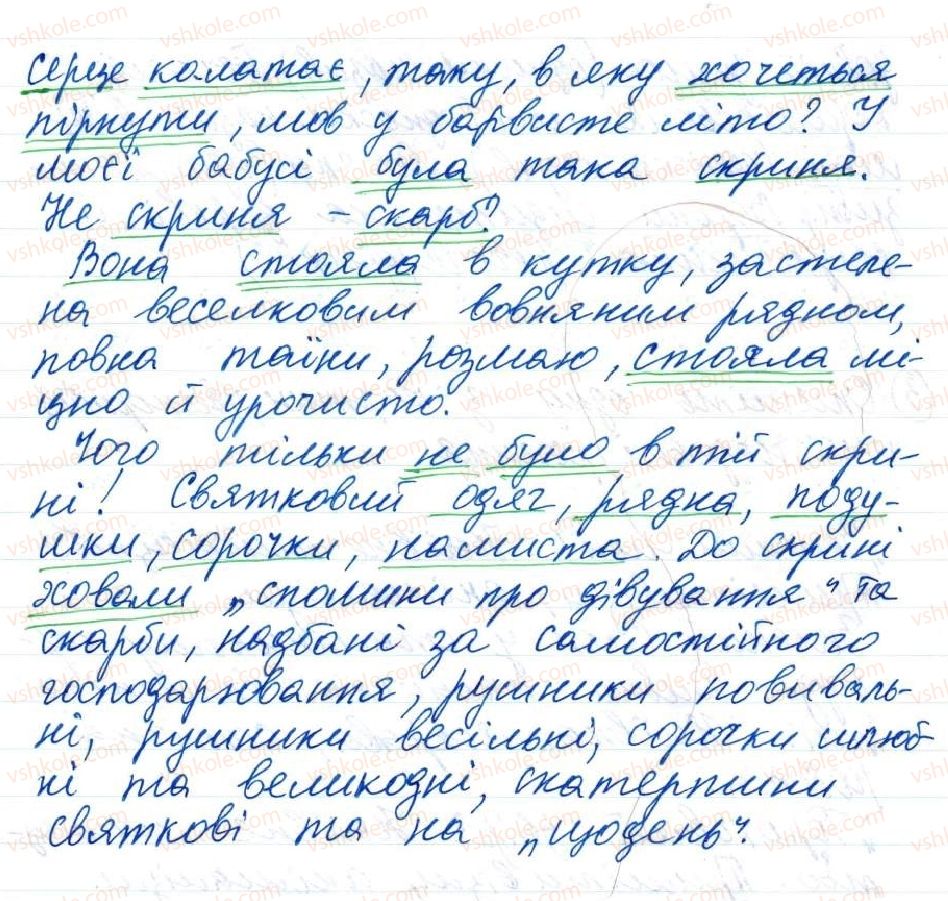 серце калатає, таку, в яку хочеться
пірнути, мов у барвисте літо? У
моєї бабусі була така скриня.
Не скриня – скарб?
Вона стояла в кутку, застеле-
на веселковим вовняним рядном,
повна таїни, розмаю, стояла мі-
цно й урочисто.
Чого тільки не було в тій скри-
ні! Святковий одяг, рядна, поду-
шки, сорочки, намиста До скрині
ховали „спомини про дівування“ та
скарби, надбані за самостійного
господарювання, рушники повиваль-
ні, рушники весільні, сорочки шлюб-
ні та великодні, скатертини
святкові та на „щодень“.